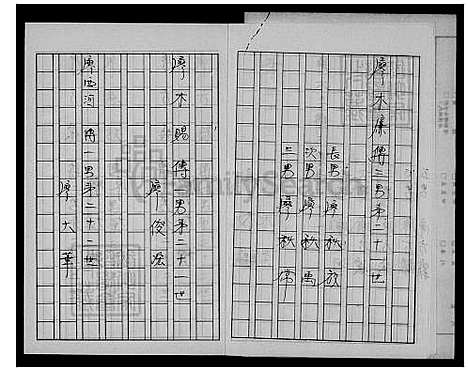 廖木康傳三男第二十世
長男廖秋放
次男廖秋禹
三男廖秋
廖木賜傳一男第二十一世
廖俊宏
廖西河傳一男第二十二世
廖大華
FamilySearch